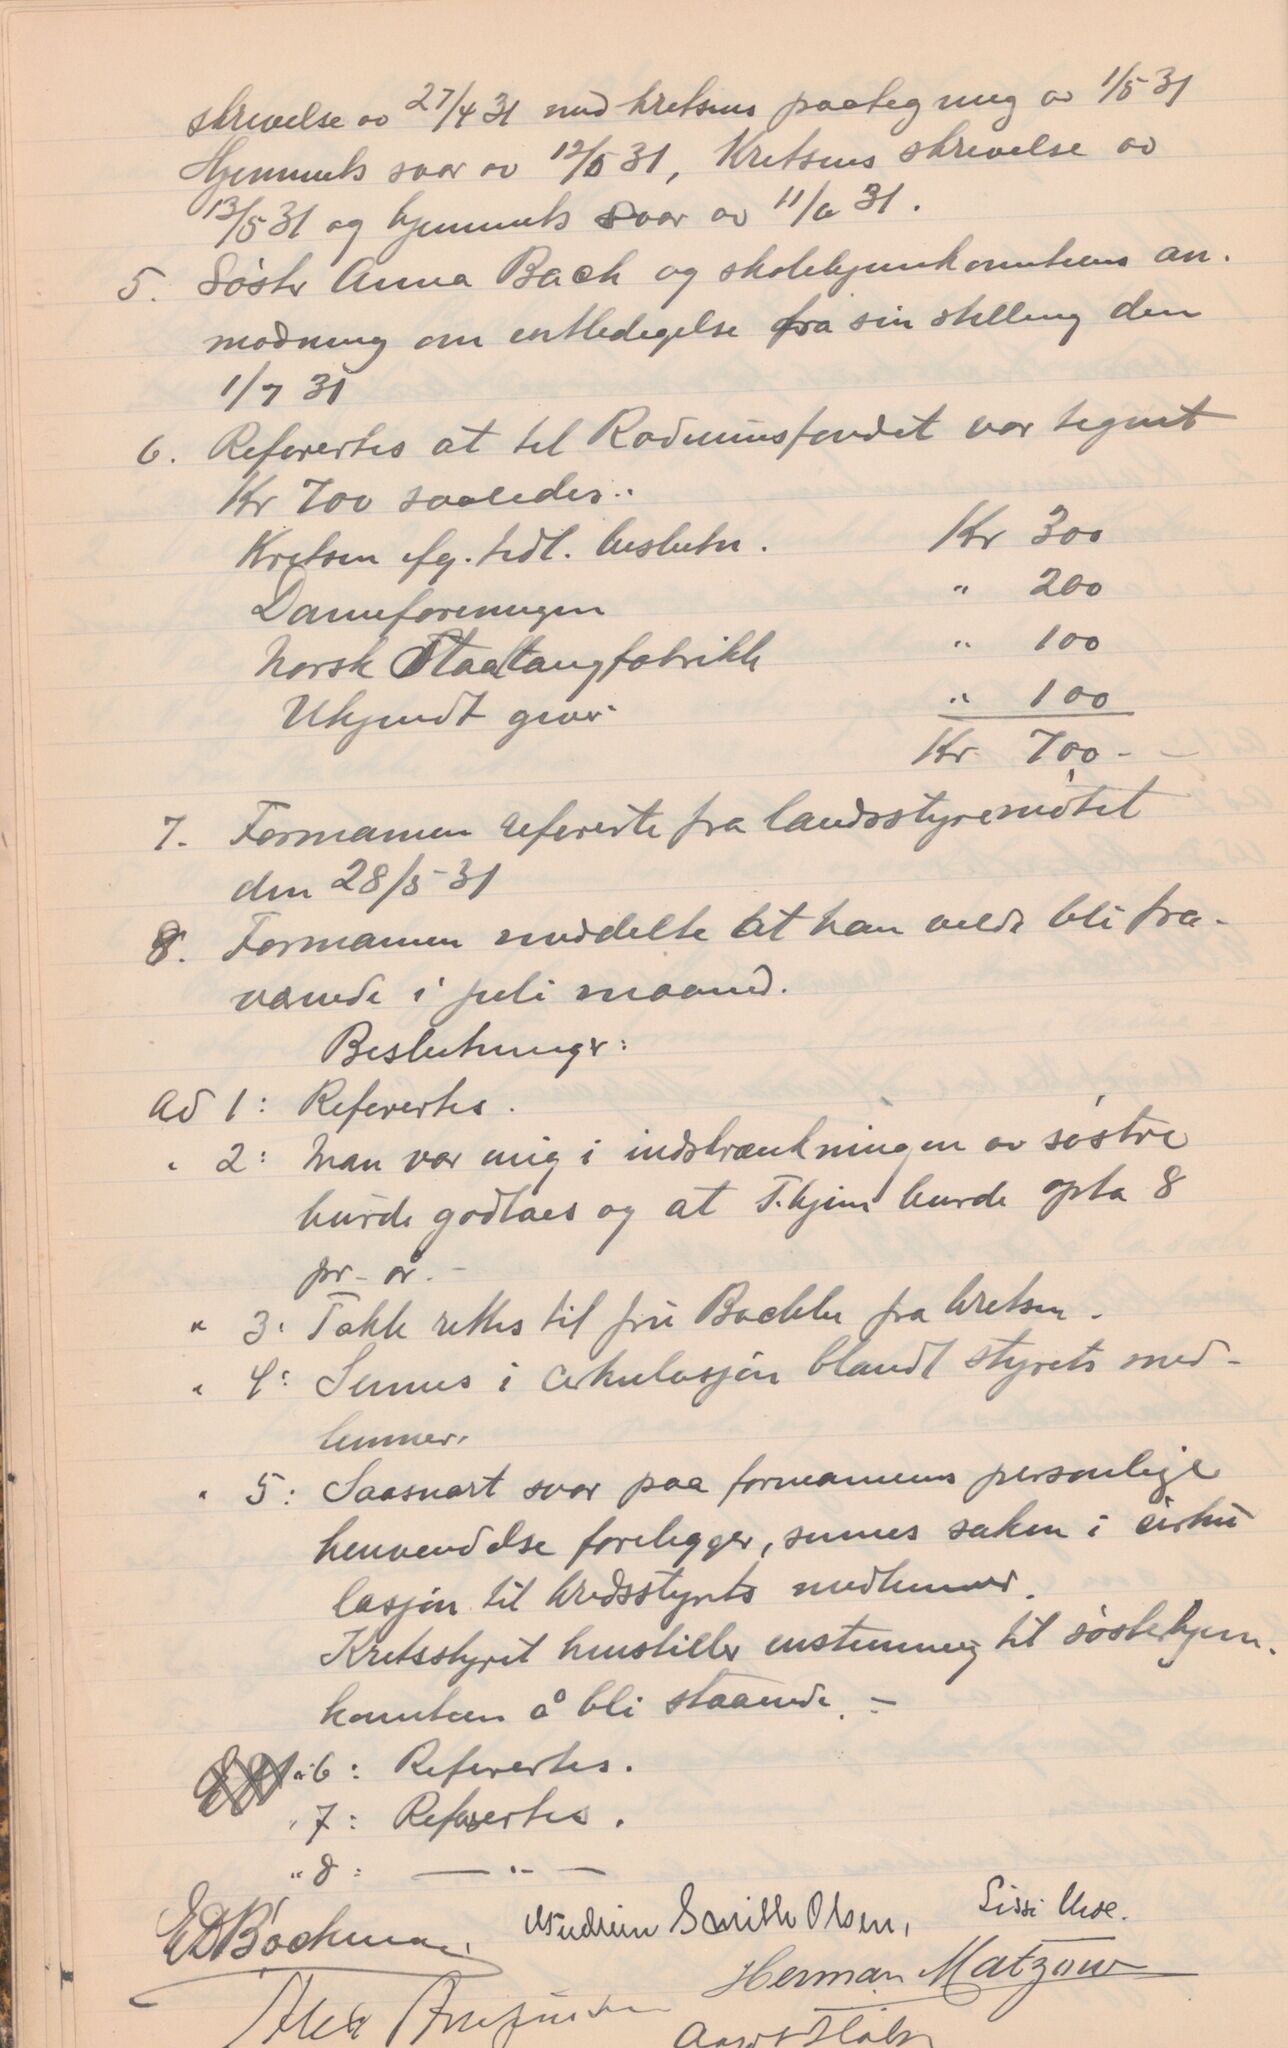 skrivelse av 27/4 31 med kretsens paategning av 1/5 31
Hjemmets svar av 12/5 31, Kretsens skrivelse av
13/5 31 og hjemmets svar av 11/6 31.
5. Søster Anna Bach og skolehjemkomiteens an-
modning om entledigelse fra sin stilling den
1/7 31
6. Refertes at til Radiumsfondet var tegnet
Kr 700 saaledes:
Kretsen efg. tidl. beslutn. Kr 300
Dameforeningen " 200
Norsk Staaltaugfabrikk " 100
Ukjendt giver " 100
Kr 700 -
7. Formannen refererte fra landsstyremøtet
den 28/5 31
8. Formannen meddelte at han vilde bli fra-
værende i juli maaned.
Beslutninger:
Ad 1: Refertes.
" 2: Man var enig i indskrænkningen av søstre
burde godtaes og at T.hjem burde opta 8
pr. år. -
" 3. Takk rettes til fru Backer fra kretsen.
" 4: Sennes i cirkulasjon blandt styrets med-
lemmer.
" 5: Saasnart svar paa formannens personlige
henvendelse foreligger, sennes saken i cirku
lasjon til kredsstyrets medlemmer.
Kretsstyret henstiller enstemmig til søsterhjem-
komiteen å bli staaende. -
" 6: Refertes.
" 7: Refertes.
" 8: — " —
E D Bachman Smith Olsen, Lissi
Herman Matzow
Alex